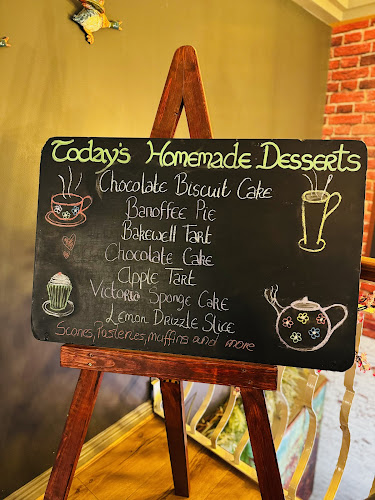 Today's Homemade Desserts
Chocolate Biscuit Cake
Banoffee Pie
Bakewell Tart
Chocolate Cake
Apple Tart
Victoria Sponge Cake
Lemon Drizzle Slice
Scones, Pasteries, muffins and more